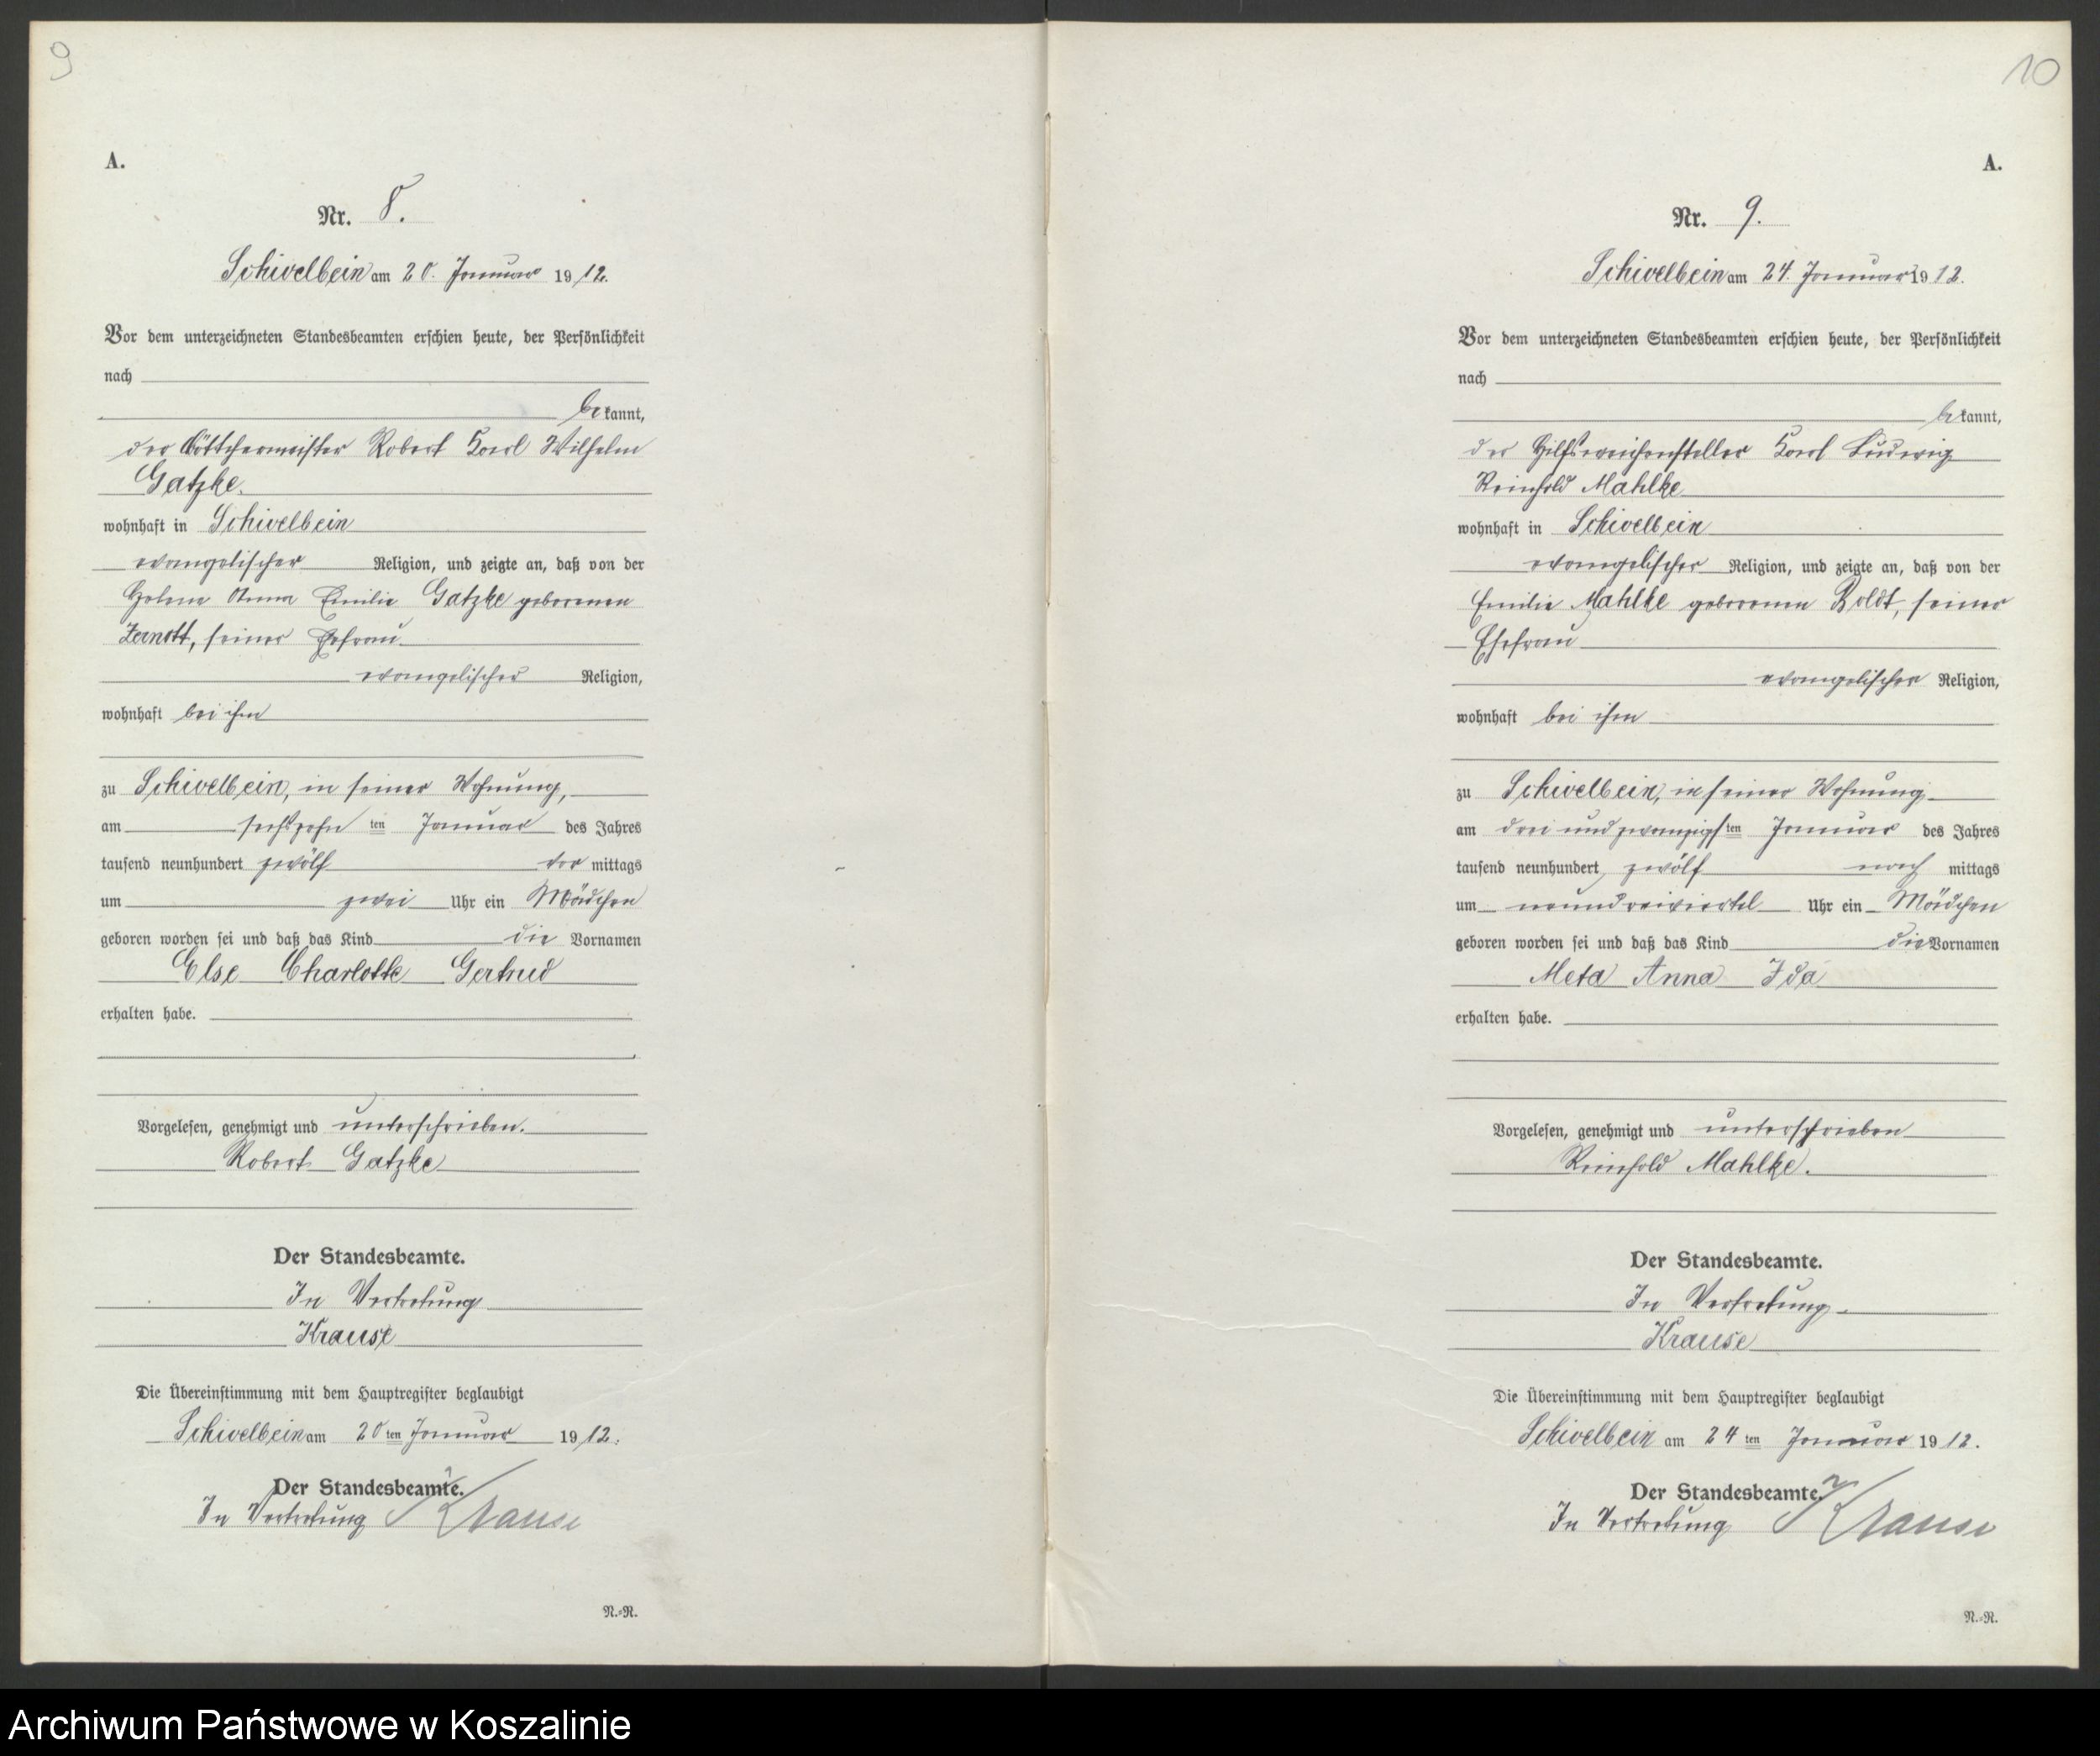 9
A.
Nr. 8.
Schivelbein am 20. Januar 1912.
Vor dem unterzeichneten Standesbeamten erschien heute, der Persönlichkeit
nach
bekannt,
der Böttchermeister Robert Karl Wilhelm
Gatzke.
wohnhaft in Schivelbein
evangelischer Religion, und zeigte an, daß von der
Helene Anna Emilie Gatzke geborenen
Zernott, seiner Ehefrau
evangelischer Religion,
wohnhaft bei ihm
zu Schivelbein, in seiner Wohnung,
am sechszehn ten Januar des Jahres
tausend neunhundert zwölf vor mittags
um zwei Uhr ein Mädchen
geboren worden sei und daß das Kind die Vornamen
Else Charlotte Gertrud
erhalten habe.
Vorgelesen, genehmigt und unterschrieben.
Robert Gatzke
Der Standesbeamte.
In Vertretung
Krause
Die Übereinstimmung mit dem Hauptregister beglaubigt
Schivelbein am 20 ten Januar 1912.
Der Standesbeamte.
In Vertretung Krause
N.-R.
10
A.
Nr. 9.
Schivelbein am 24. Januar 1912.
Vor dem unterzeichneten Standesbeamten erschien heute, der Persönlichkeit
nach
bekannt,
der Hilfsweichensteller Karl Ludwig
Reinhold Mahlke
wohnhaft in Schivelbein
evangelischer Religion, und zeigte an, daß von der
Emilie Mahlke geborenen Boldt, seiner
Ehefrau
evangelischer Religion,
wohnhaft bei ihm
zu Schivelbein, in seiner Wohnung
am drei und zwanzigs ten Januar des Jahres
tausend neunhundert zwölf nach mittags
um neundreiviertel Uhr ein Mädchen
geboren worden sei und daß das Kind die Vornamen
Meta Anna Ida
erhalten habe.
Vorgelesen, genehmigt und unterschrieben
Reinhold Mahlke.
Der Standesbeamte.
In Vertretung
Krause
Die Übereinstimmung mit dem Hauptregister beglaubigt
Schivelbein am 24 ten Januar 1912.
Der Standesbeamte.
In Vertretung Krause
N.-R.
Archiwum Państwowe w Koszalinie